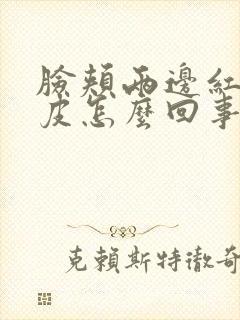 臉頰兩邊紅
皮怎麼回事
克賴斯特徹奇